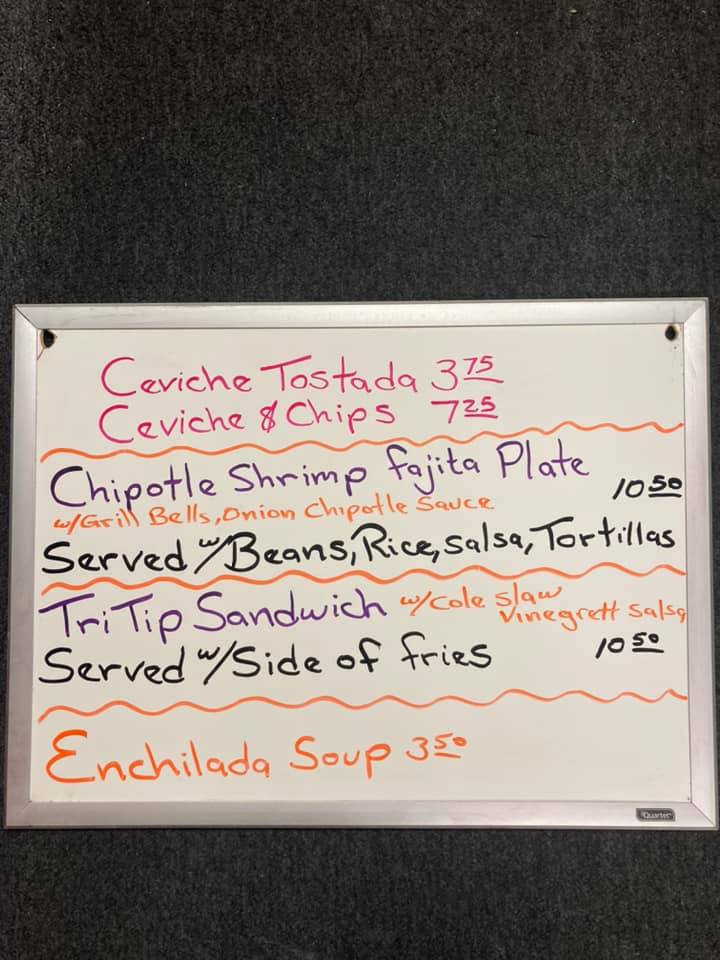 Ceviche Tostada 3 75
Ceviche & Chips 7 25
Chipotle Shrimp fajita Plate 10 50
w/Grill Bells, Onion Chipotle Sauce
Served w/Beans, Rice, salsa, Tortillas
Tri Tip Sandwich w/cole slaw
vinegrett salsa
Served w/Side of fries 10 50
Enchilada Soup 3 50
Quartet